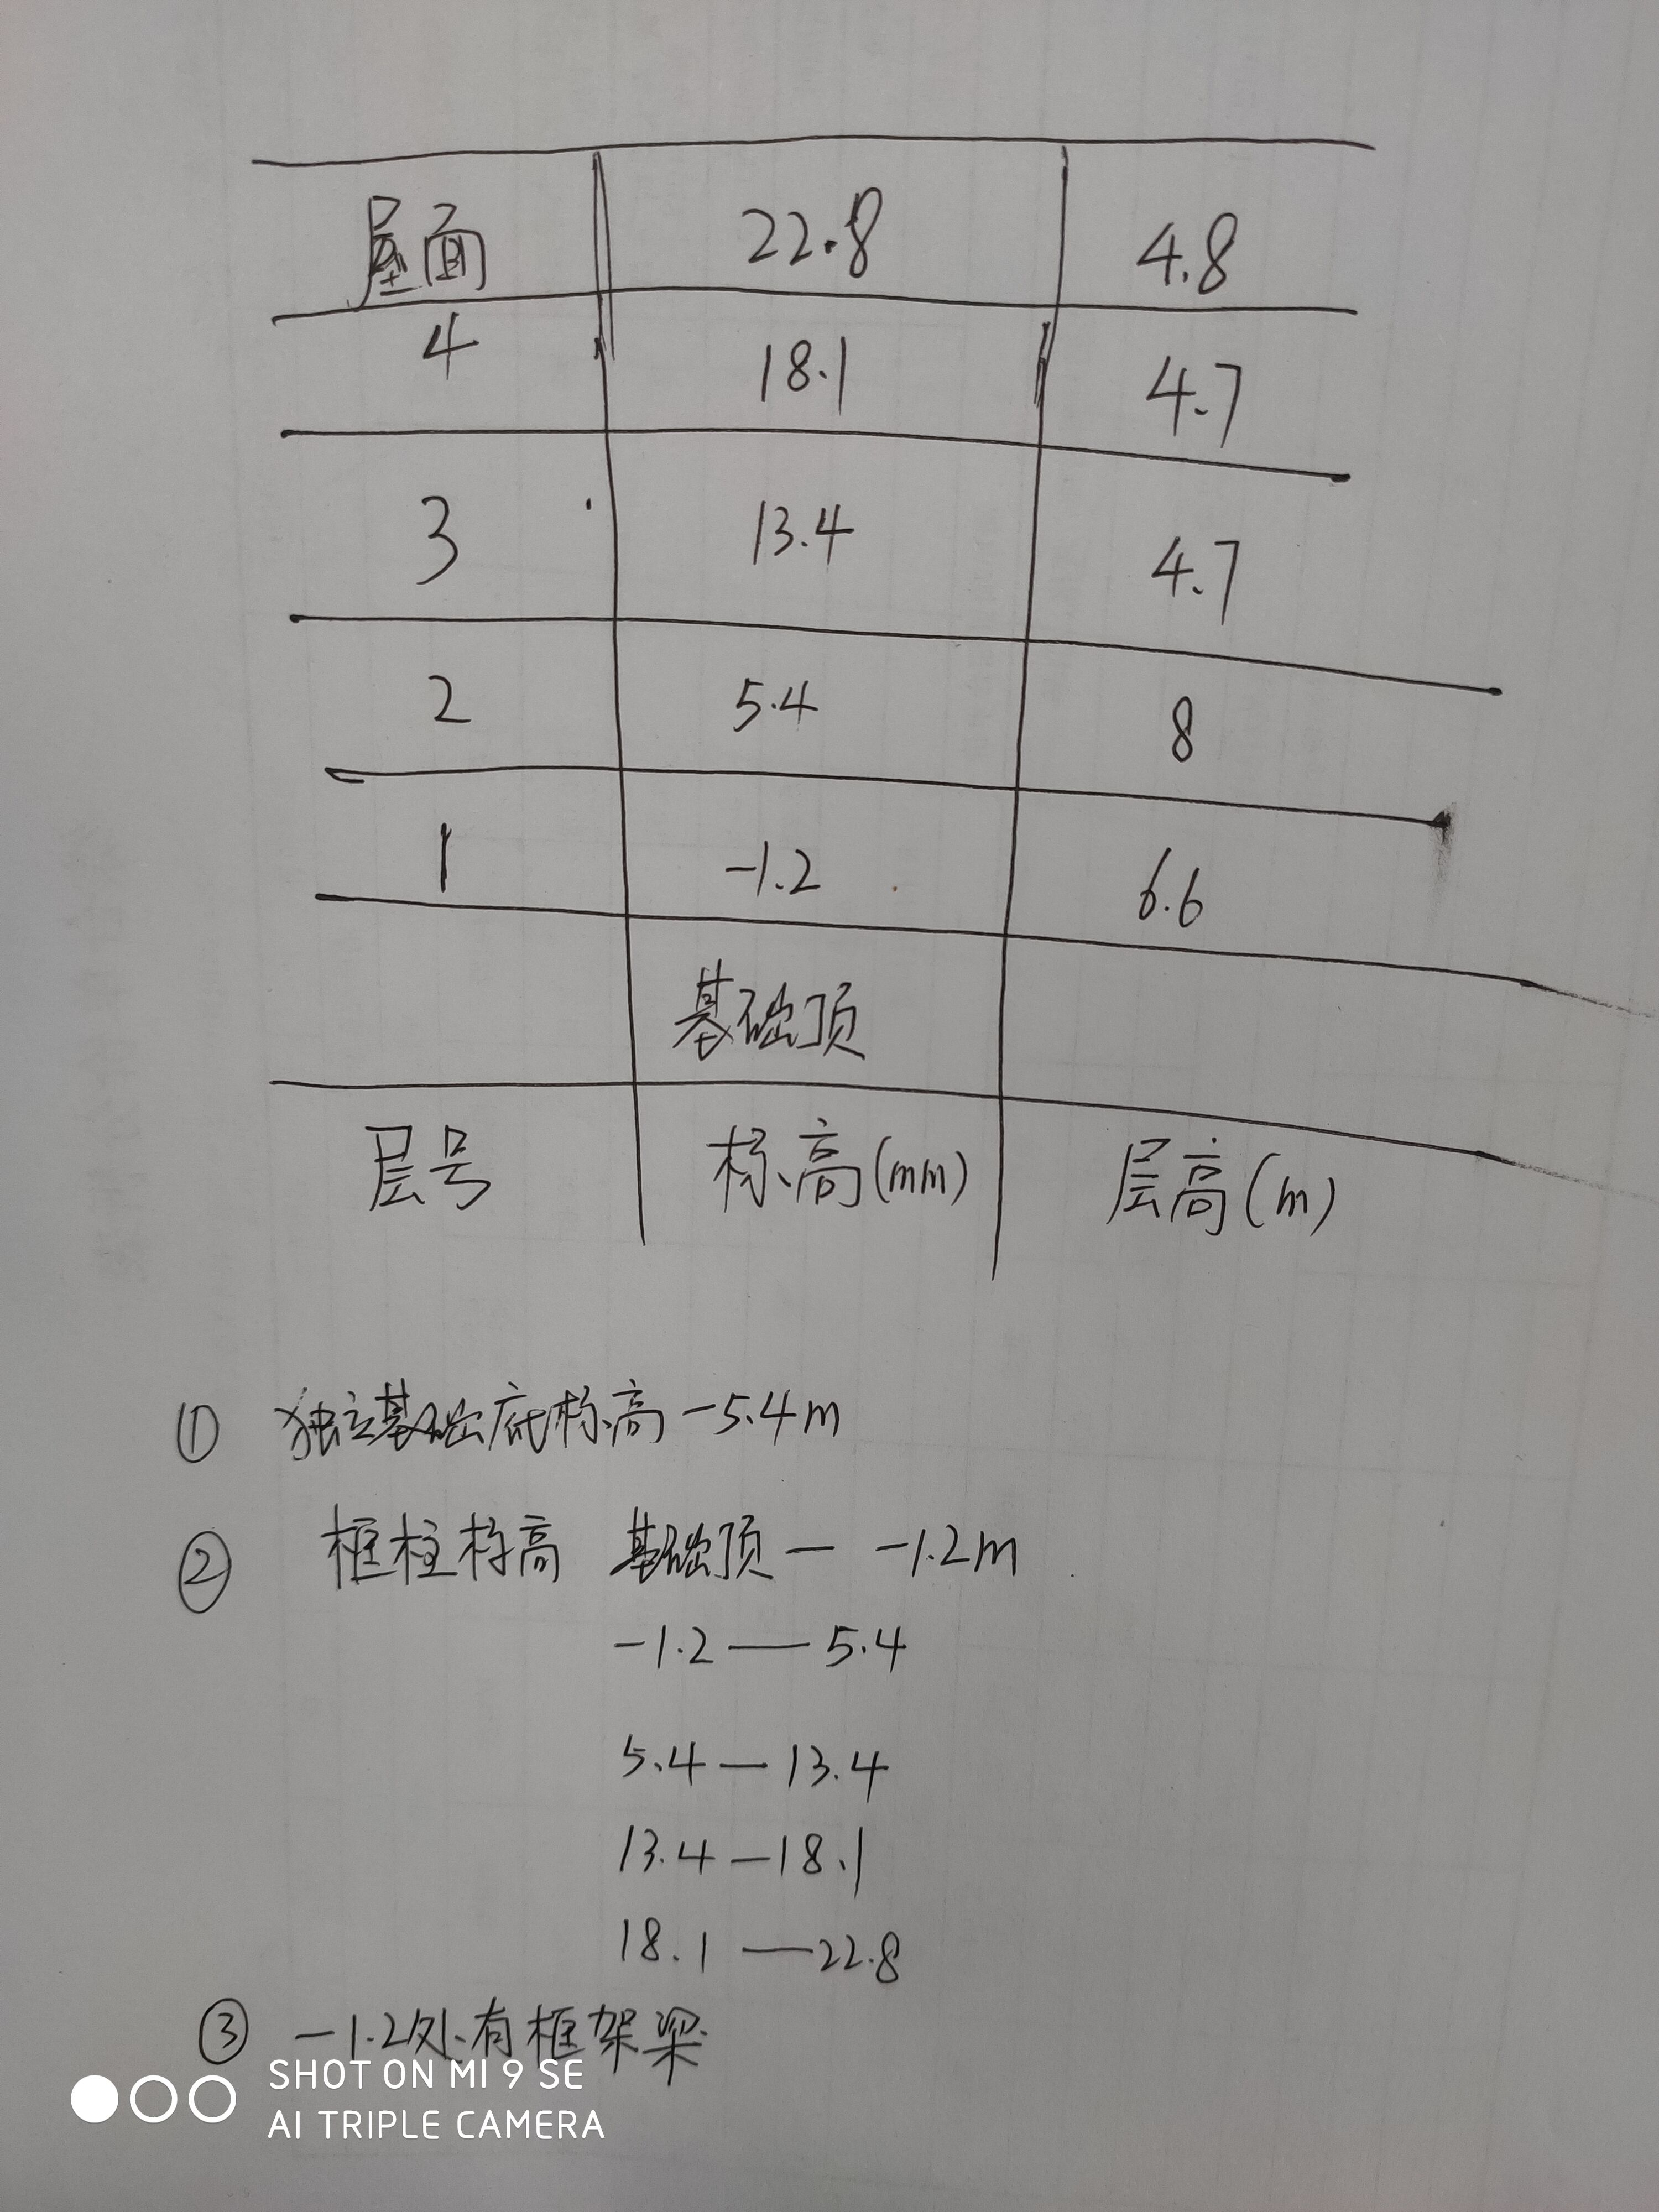 屋面 22.8 4.8
4 18.1 4.7
3 13.4 4.7
2 5.4 8
1 -1.2 6.6
基础顶
层号 标高(mm) 层高(m)
① 独立基础底标高-5.4m
② 框柱标高 基础顶— -1.2m
-1.2——5.4
5.4—13.4
13.4—18.1
18.1——22.8
③ -1.2处有框架梁
SHOT ON MI 9 SE
AI TRIPLE CAMERA